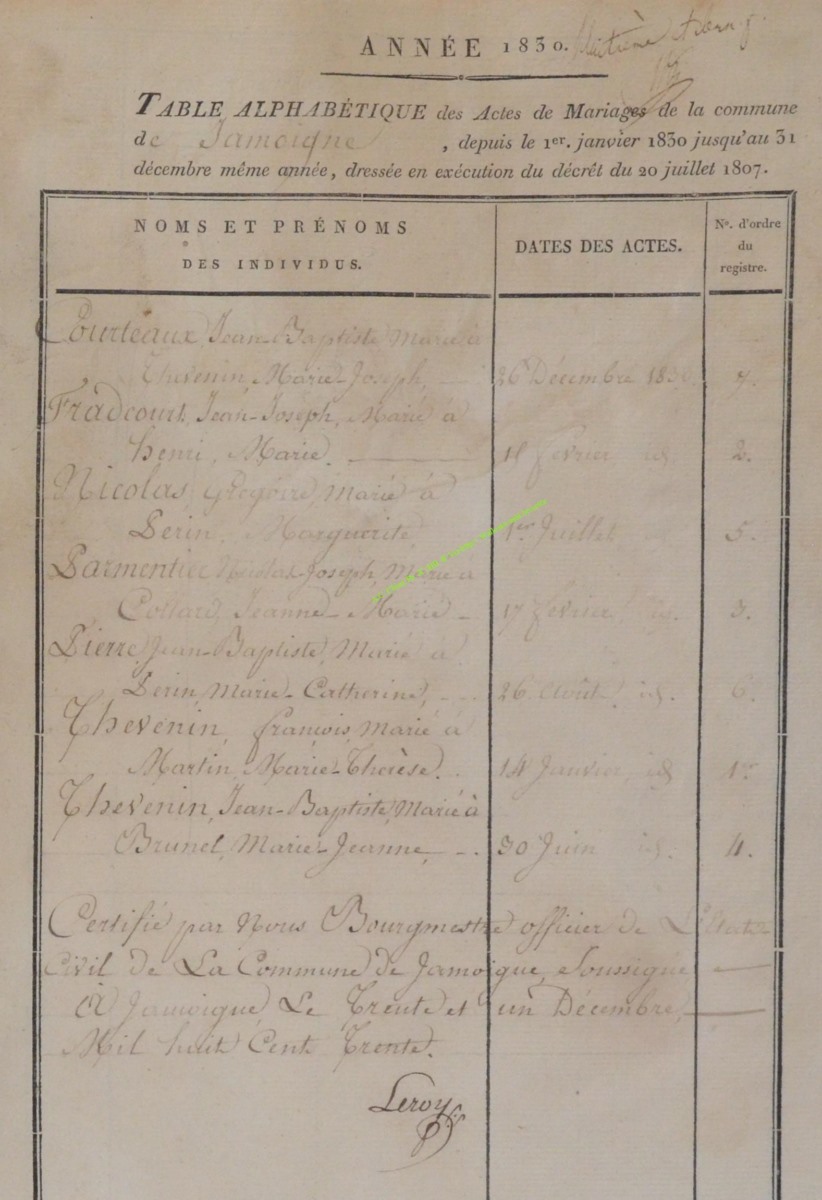 ANNÉE 1830.
TABLE ALPHABÉTIQUE des Actes de Mariages de la commune
de Jamoigne, depuis le 1er. janvier 1830 jusqu'au 31
décembre même année, dressée en exécution du décrêt du 20 juillet 1807.
NOMS ET PRÉNOMS
DES INDIVIDUS.
DATES DES ACTES.
No. d'ordre
du
registre.
Courteaux Jean-Baptiste, Marié à
Thevenin, Marie-Joseph, 26 Décembre 1830. 7.
Fradcourt, Jean-Joseph, Marié à
henri, Marie. février id. 2.
Nicolas, Grégoire, marié à
Perin, Marguerite, 1er Juillet 5.
Parmentier Nicolas-Joseph, Marié à
Collard, Jeanne-Marie - 17 février 3.
Pierre, Jean-Baptiste, Marié à
Perin, Marie-Catherine, - 26 Août, id. 6.
Thevenin, françois, marié à
Martin, Marie-Thérèse. 14 Janvier, id. 1er
Thevenin, Jean-Baptiste, Marié à
Brunel, Marie-Jeanne, - 30 Juin id. 4.
Certifié par Nous Bourgmestre officier de L'Etat
Civil de La Commune de Jamoigne, Soussigné
À Jamoigne, Le Trente et un Décembre,
Mil huit Cent Trente.
Leroy